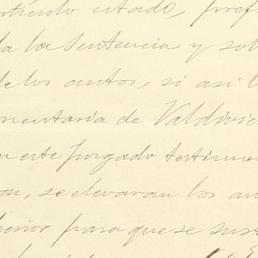 artículo citado, pref
da la sentencia y sob
de los autos, si así l
mentaría de Valdivie
en este Juzgado testimon
ron, se elevaran los au
perior para que se sus